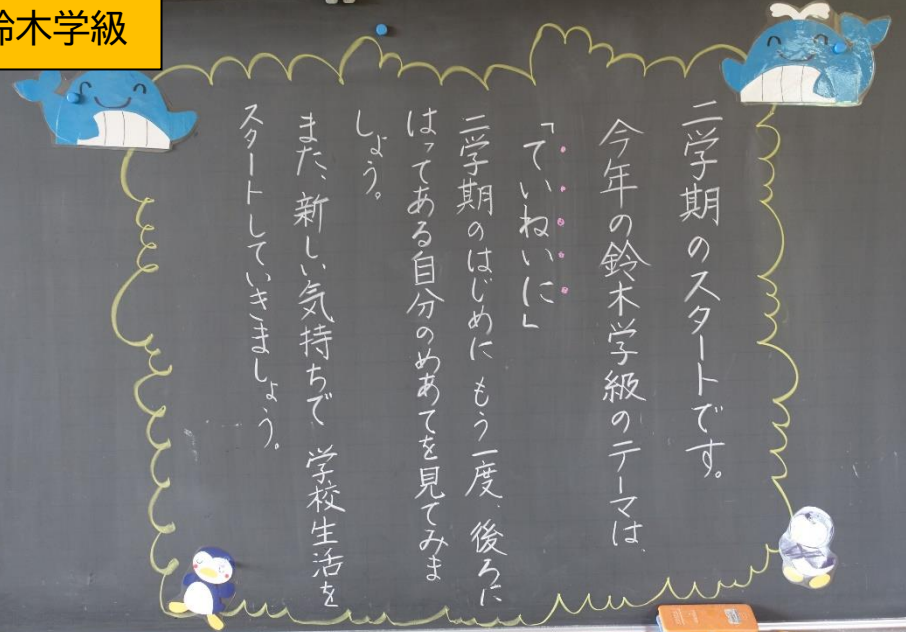 鈴木学級
二学期のスタートです。
今年の鈴木学級のテーマは、
「ていねいに」
二学期のはじめに もう一度、後ろに
はってある自分のめあてを見てみま
しょう。
また、新しい気持ちで 学校生活を
スタートしていきましょう。